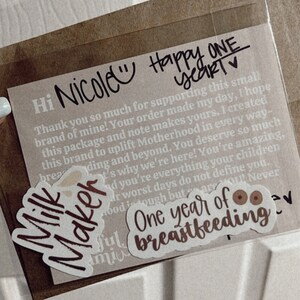 Nicole
Happy ONE
year!
Hi
Thank you so much for supporting this small
brand of mine! Your order made my day, I hope
this package and note makes yours. I created
this brand to uplift Motherhood in every way
feeding and beyond. You deserve so much
that's why we're here! You're amazing,
and you're everything your children
Your worst days do not define you.
Milk
Maker
One year of
breastfeeding